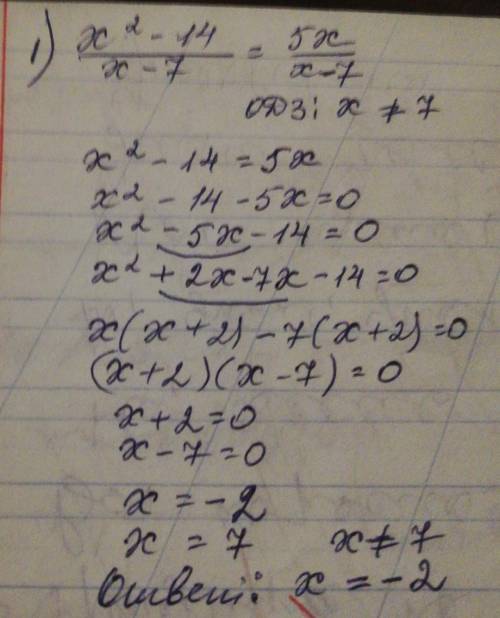 1) (x² - 14)/(x - 7) = 5x/(x-7)
ОДЗ: x ≠ 7
x² - 14 = 5x
x² - 14 - 5x = 0
x² - 5x - 14 = 0
x² + 2x - 7x - 14 = 0
x(x + 2) - 7(x + 2) = 0
(x + 2)(x - 7) = 0
x + 2 = 0
x - 7 = 0
x = -2
x = 7 x ≠ 7
Ответ: x = -2